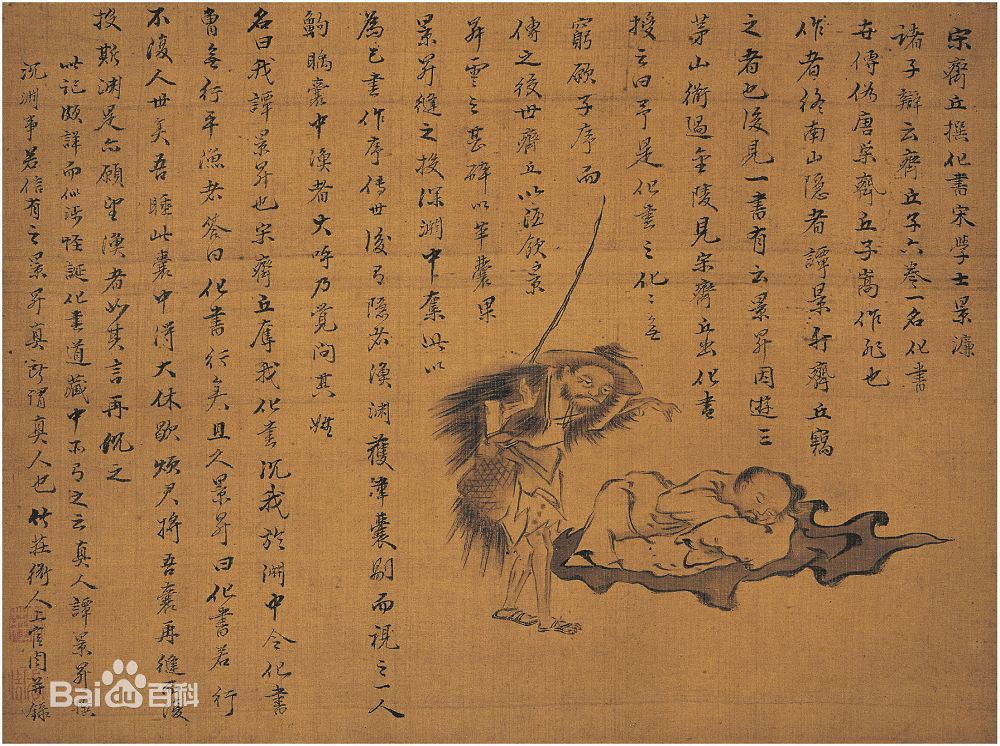 宋齊丘撰化書宋學士景濂
諸子辯云齊丘子六卷一名化書
世傳偽唐宋齊丘子嵩作非也
作者終南山隱者譚景升齊丘竊
之者也後見一書有云景昇因遊三
茅山衜過金陵見宋齊丘出化書
授之曰予是化書之化之無
窮願子序而
傳之後世齊丘以酒飲景
昇雲之甚碎以革囊果
景昇縫之投深淵中奪此以
為己書作序傳世後有隱者漁淵獲革囊剔而視之一人
齁睡囊中漁者大呼乃覺問其姓
名曰我譚景昇也宋齊丘奪我化書沉我於淵中今化書
曾無行乎漁者答曰化書行矣且久景昇曰化書若行
不復人世矣吾睡此囊中得大休歇煩君將吾囊再縫而復
投斯淵是亦願望漁者如其言再沉之
此記頗詳而似涉怪誕化書道藏中亦有之云真人譚景昇撰
沉淵事若信有之景昇真所謂真人也竹莊衜人上官周并錄
Bai百科